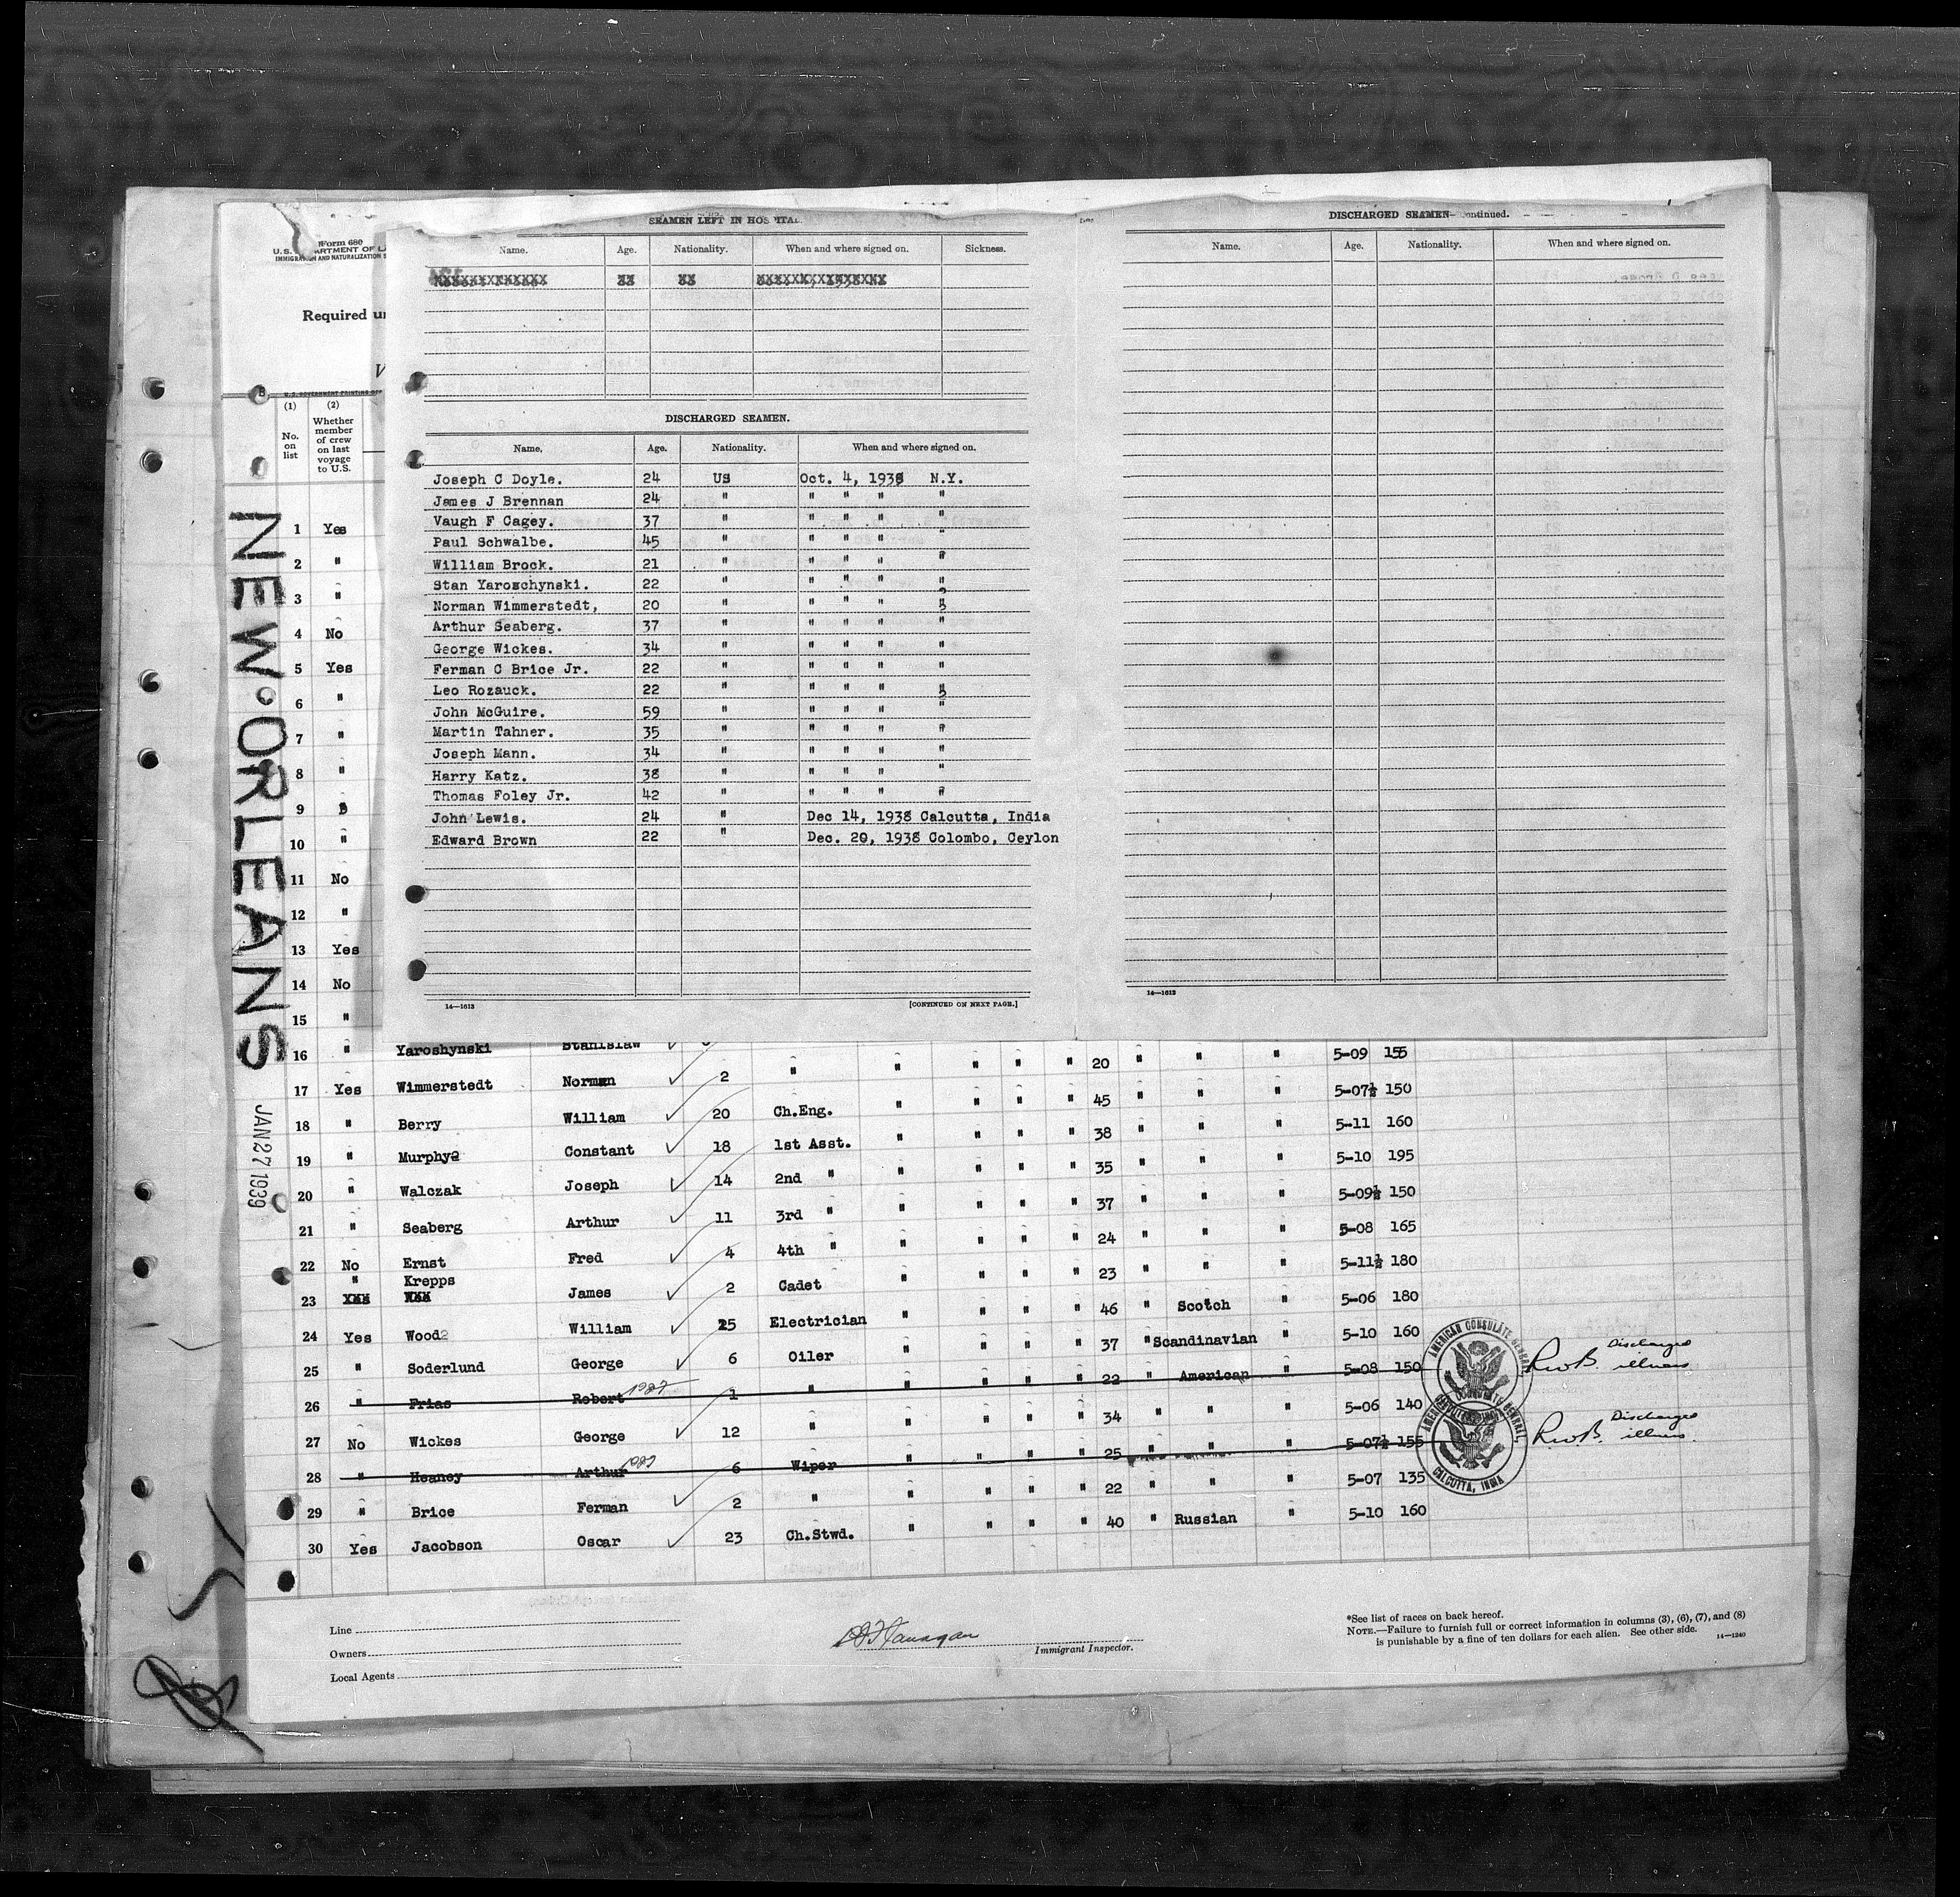 SEAMEN LEFT IN HOSPITAL
Name. Age. Nationality. When and where signed on. Sickness.
DISCHARGED SEAMEN.
Name. Age. Nationality. When and where signed on.
Joseph C Doyle. 24 US Oct. 4, 1938 N.Y.
James J Brennan 24 " " " " "
Vaugh F Cagey. 37 " " " " "
Paul Schwalbe. 45 " " " " "
William Brock. 21 " " " " "
Stan Yaroschynski. 22 " " " " "
Norman Wimmerstedt, 20 " " " " "
Arthur Seaberg. 37 " " " " "
George Wickes. 34 " " " " "
Ferman C Brice Jr. 22 " " " " "
Leo Rozauck. 22 " " " " "
John McGuire. 59 " " " " "
Martin Tahner. 35 " " " " "
Joseph Mann. 34 " " " " "
Harry Katz. 38 " " " " "
Thomas Foley Jr. 42 " " " " "
John Lewis. 24 " Dec 14, 1938 Calcutta, India
Edward Brown 22 " Dec. 20, 1938 Colombo, Ceylon
14—1613 [CONTINUED ON NEXT PAGE.]
DISCHARGED SEAMEN—Continued.
Name. Age. Nationality. When and where signed on.
14—1613
Form 680
U.S. DEPARTMENT OF
IMMIGRATION AND NATURALIZATION
Required
U.S. GOVERNMENT PRINTING
(1) (2)
No. on list
Whether member of crew on last voyage to U.S.
NEW ORLEANS
JAN 27 1939
1 Yes
2 "
3 "
4 No
5 Yes
6 "
7 "
8 "
9
10 "
11 No
12 "
13 Yes
14 No
15 "
16 " Yaroshynski Stanislaw " " " " " 20 " " " 5-09 155
17 Yes Wimmerstedt Norman 2 " " " " " 45 " " " 5-07½ 150
18 " Berry William 20 Ch.Eng. " " " " 38 " " " 5-11 160
19 " Murphy Constant 18 1st Asst. " " " " 35 " " " 5-10 195
20 " Walczak Joseph 14 2nd " " " " " 37 " " " 5-09½ 150
21 " Seaberg Arthur 11 3rd " " " " " 24 " " " 5-08 165
22 No Ernst Fred 4 4th " " " " " 23 " " " 5-11½ 180
23 " Krepps James 2 Cadet " " " " 46 " Scotch " 5-06 180
24 Yes Wood William 25 Electrician " " " " 37 " Scandinavian " 5-10 160
25 " Soderlund George 6 Oiler " " " " 22 " American " 5-08 150
26 " Frias Robert 1 " " " " " 34 " " " 5-06 140
27 No Wickes George 12 " " " " " 25 " " " 5-07½ 155
28 " Heaney Arthur 6 Wiper " " " " 22 " " " 5-07 135
29 " Brice Ferman 2 " " " " " 40 " Russian " 5-10 160
30 Yes Jacobson Oscar 23 Ch.Stwd.
AMERICAN CONSULATE GENERAL
Discharged
RwB. illness
AMERICAN CONSULATE GENERAL
CALCUTTA, INDIA
Discharged
RwB. illness.
Line
Owners
Local Agents
Immigrant Inspector.
*See list of races on back hereof.
NOTE.—Failure to furnish full or correct information in columns (3), (6), (7), and (8)
is punishable by a fine of ten dollars for each alien. See other side.
14—1240